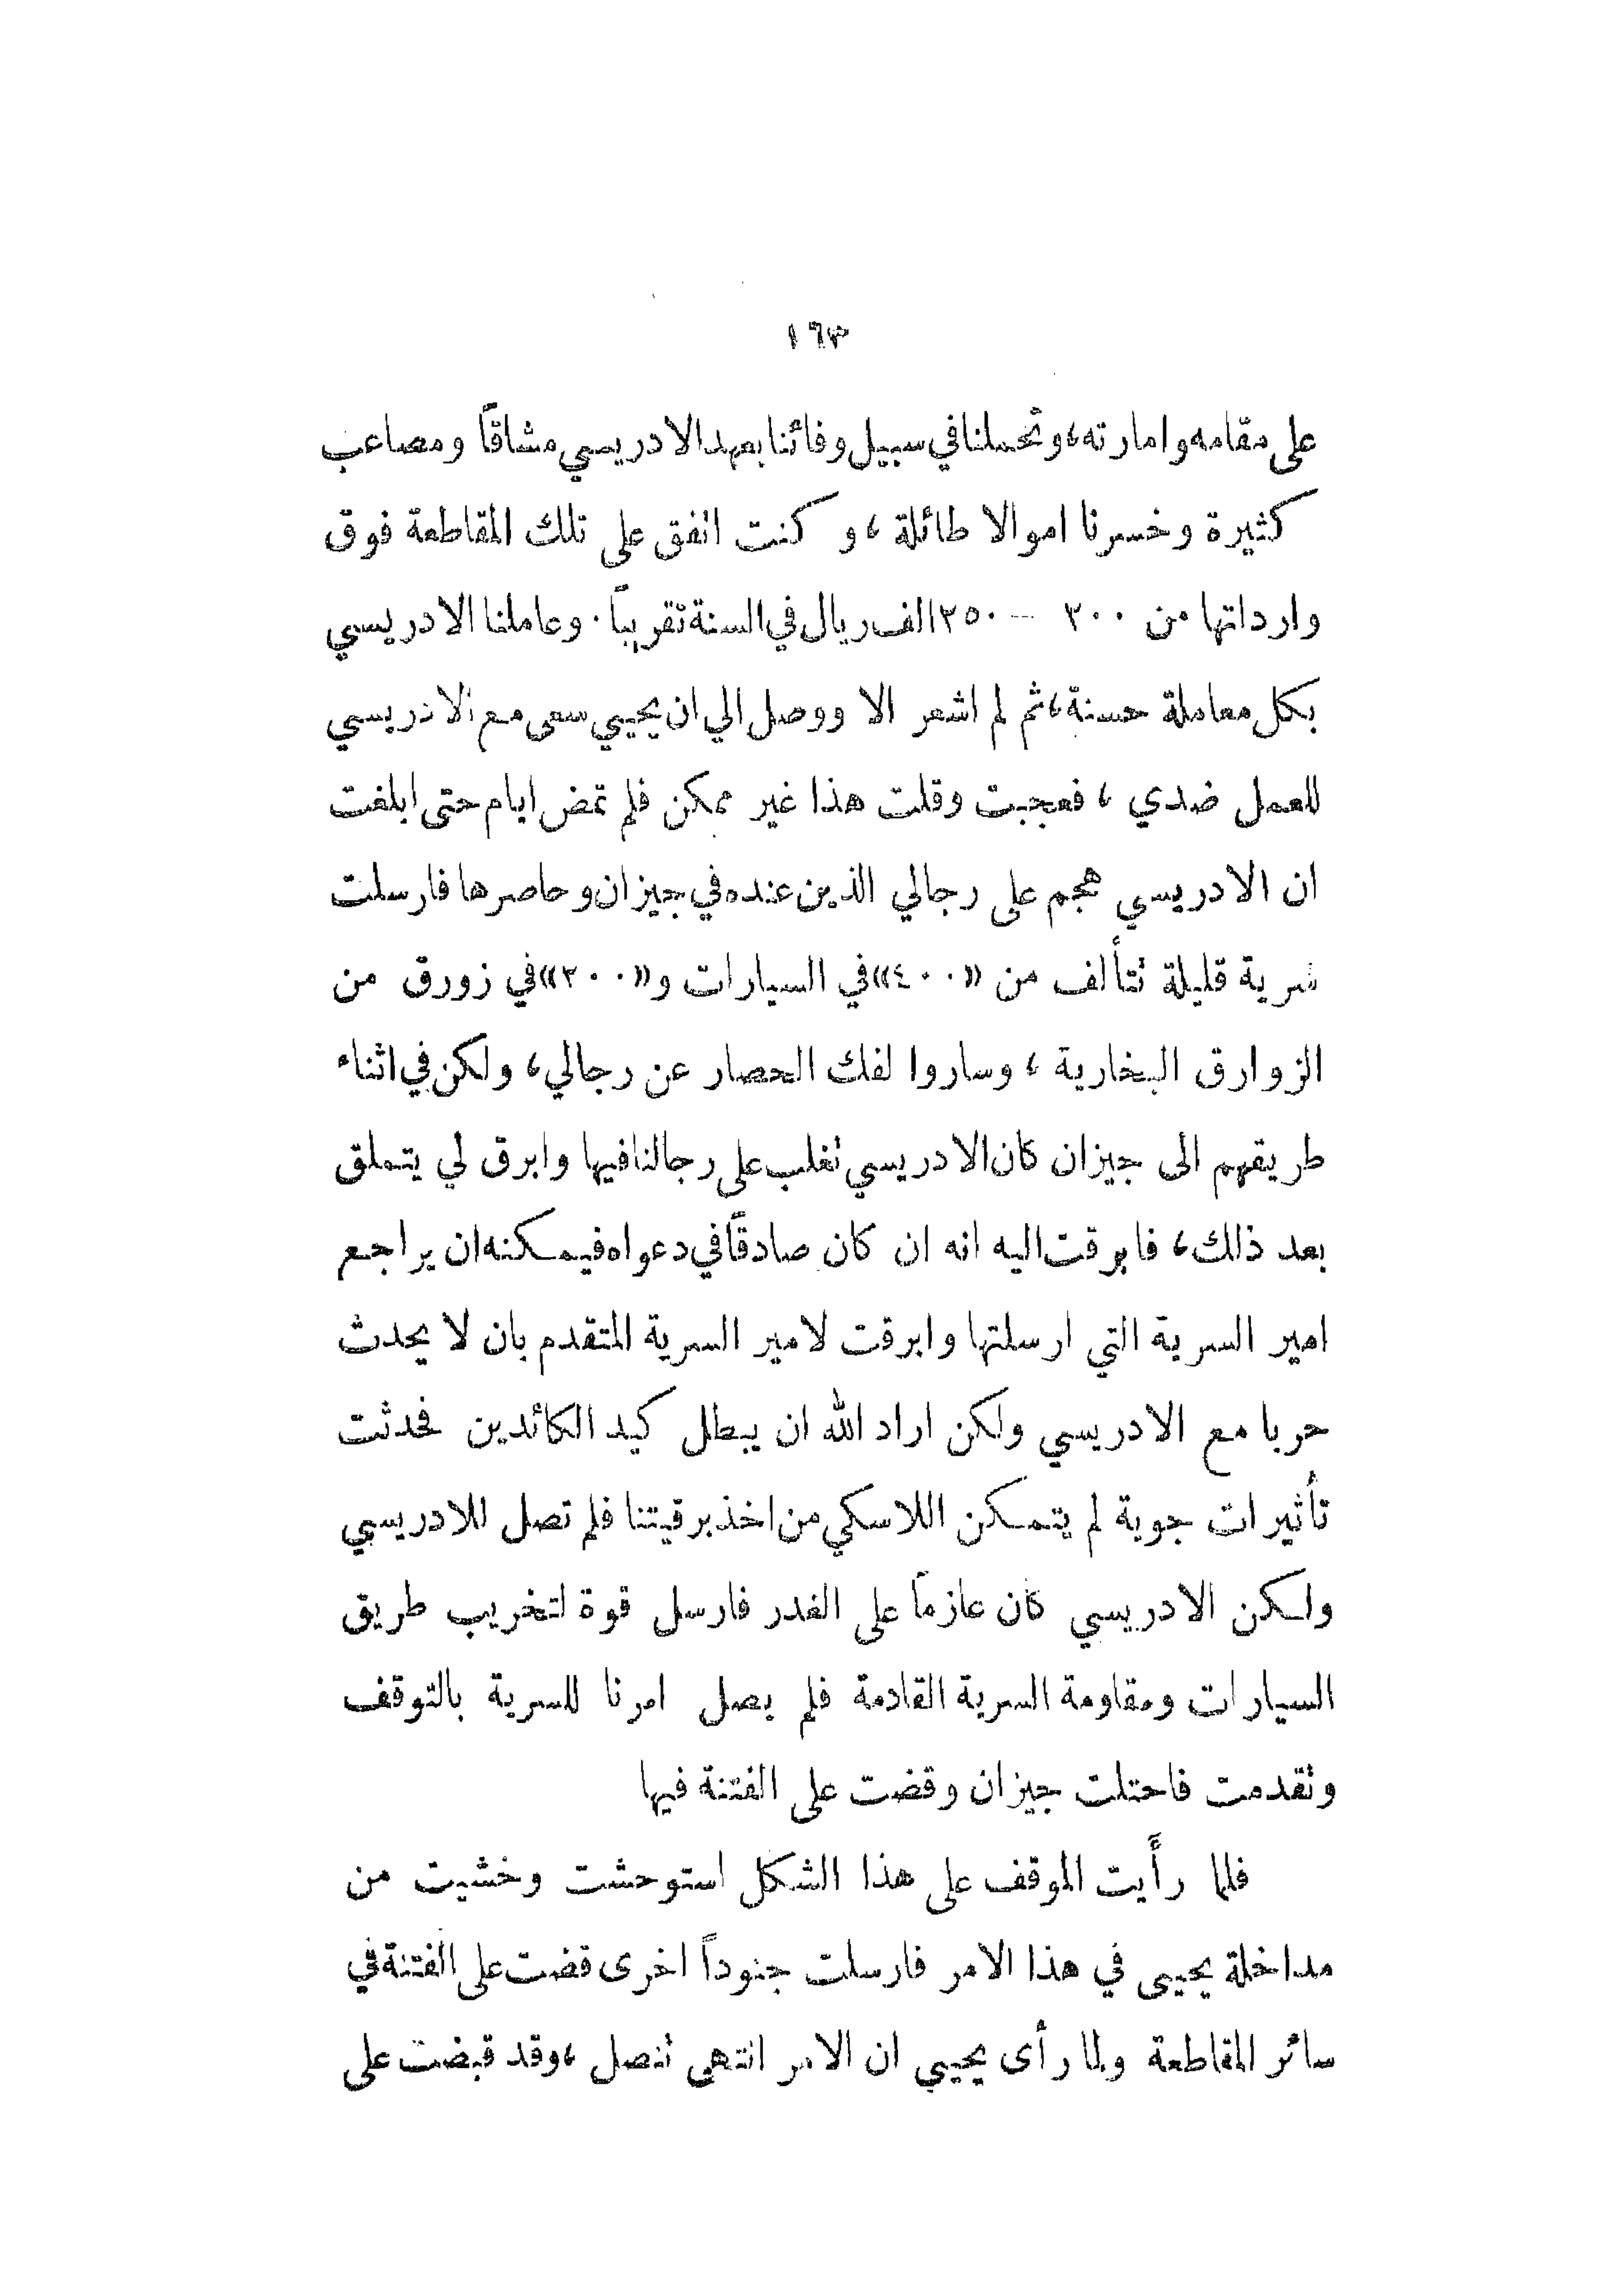 ١٦٣
على مقامه وامارته، وتحملنا في سبيل وفائنا بعهد الادريسي مشاقاً ومصاعب
كثيرة وخسرنا اموالا طائلة، و كنت انفق على تلك المقاطعة فوق
وارداتها من ٢٠٠ — ٢٥٠ الف ريال في السنة تقريباً. وعاملنا الادريسي
بكل معاملة حسنة، ثم لم اشعر الا ووصل الي ان يحيي سعى مع الادريسي
للعمل ضدي، فعجبت وقلت هذا غير ممكن فلم تمض ايام حتى ابلغت
ان الادريسي هجم على رجالي الذين عنده في جيزان وحاصرها فارسلت
سرية قليلة تتألف من «٤٠٠» في السيارات و«٢٠٠» في زورق من
الزوارق البخارية، وساروا لفك الحصار عن رجالي، ولكن في اثناء
طريقهم الى جيزان كان الادريسي تغلب على رجالنا فيها وابرق لي يتملق
بعد ذلك، فابرقت اليه انه ان كان صادقاً في دعواه فيمكنه ان يراجع
امير السرية التي ارسلتها وابرقت لامير السرية المتقدم بان لا يحدث
حربا مع الادريسي ولكن اراد الله ان يبطل كيد الكائدين فحدثت
تأثيرات جوية لم يتمكن اللاسكي من اخذ برقيتنا فلم تصل للادريسي
ولكن الادريسي كان عازماً على الغدر فارسل قوة لتخريب طريق
السيارات ومقاومة السرية القادمة فلم يصل امرنا للسرية بالتوقف
وتقدمت فاحتلت جيزان وقضت على الفتنة فيها
فلما رأيت الموقف على هذا الشكل استوحشت وخشيت من
مداخلة يحيى في هذا الامر فارسلت جنوداً اخرى قضت على الفتنة في
سائر المقاطعة ولما رأى يحيي ان الامر انتهى تنصل، وقد قبضت على